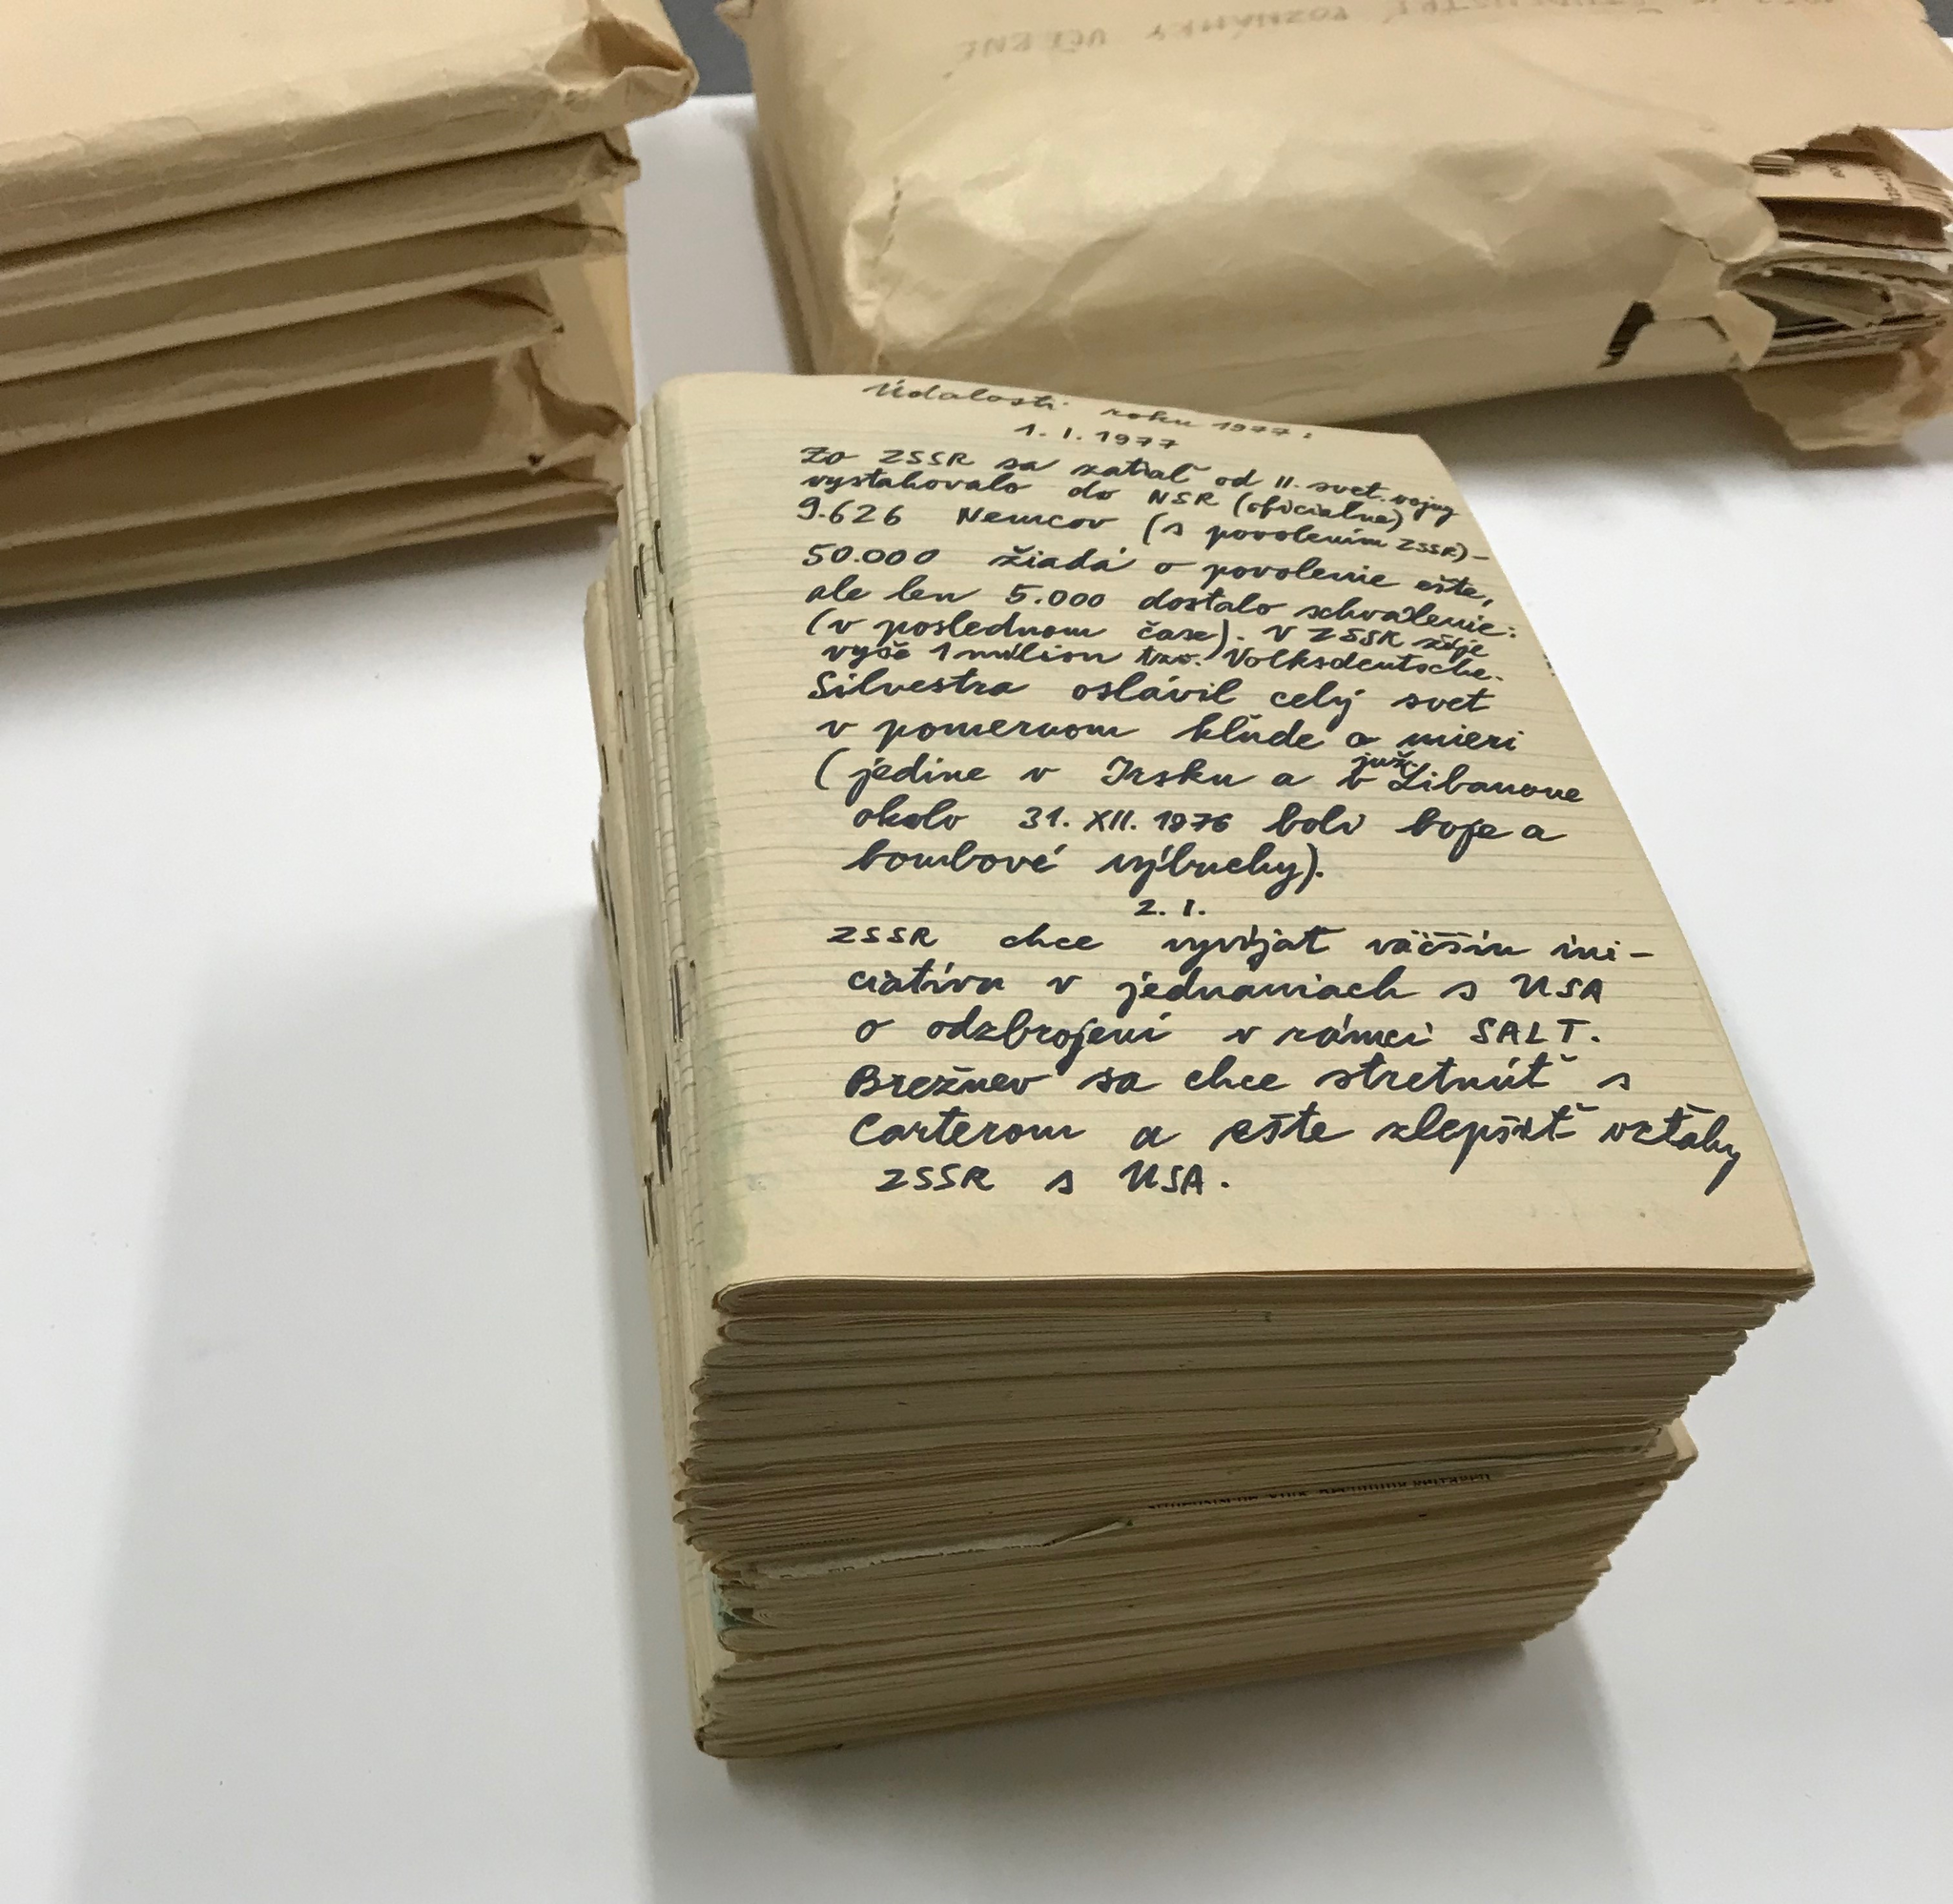 POZNÁMKY VČERNÉ
Údalosti roku 1977:
1. I. 1977
Zo ZSSR sa zatiaľ od II. svet. vojny
vysťahovalo do NSR (oficialne)
9.626 Nemcov (s povolením ZSSR) -
50.000 žiadá o povolenie ešte,
ale len 5.000 dostalo schválenie:
(v poslednom čase). V ZSSR žije
vyše 1 milion tzv. Volksdeutsche.
Silvestra oslávil celý svet
v pomernom klude a mieri
(jedine v Irsku a v juž. Libanone
okolo 31. XII. 1976 boli boje a
bombové výbuchy).
2. I.
ZSSR chce vyvíjať väčšiu ini-
ciatívu v jednaniach s USA
o odzbrojení v rámci SALT.
Brežnev sa chce stretnúť s
Carterom a ešte zlepšiť vzťahy
ZSSR s USA.